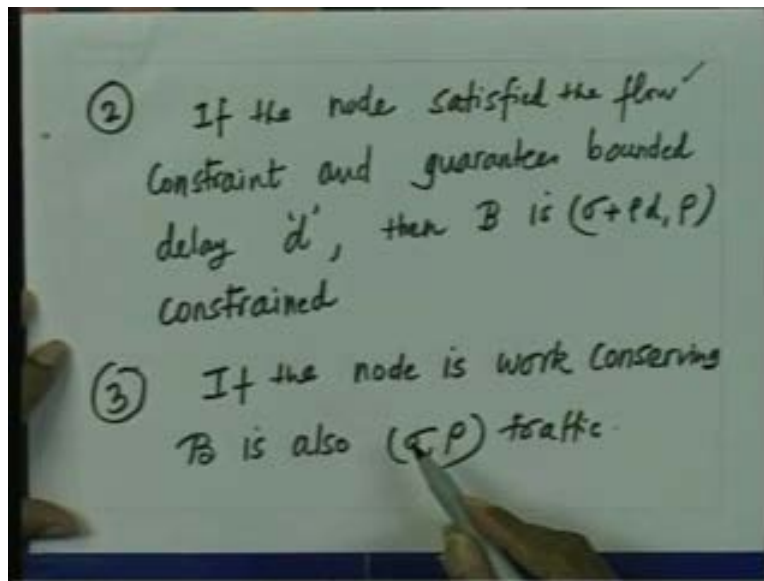 ② If the node satisfied the flow
Constraint and guarantees bounded
delay 'd', then B is (σ+ρd, ρ)
constrained
③ If the node is work conserving
B is also (σ, ρ) traffic.